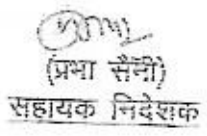 (प्रभा सैनी)
सहायक निदेशक